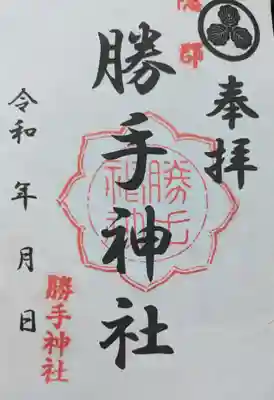 奉拝
勝手神社
勝手神社
令和 年 月 日
勝手神社